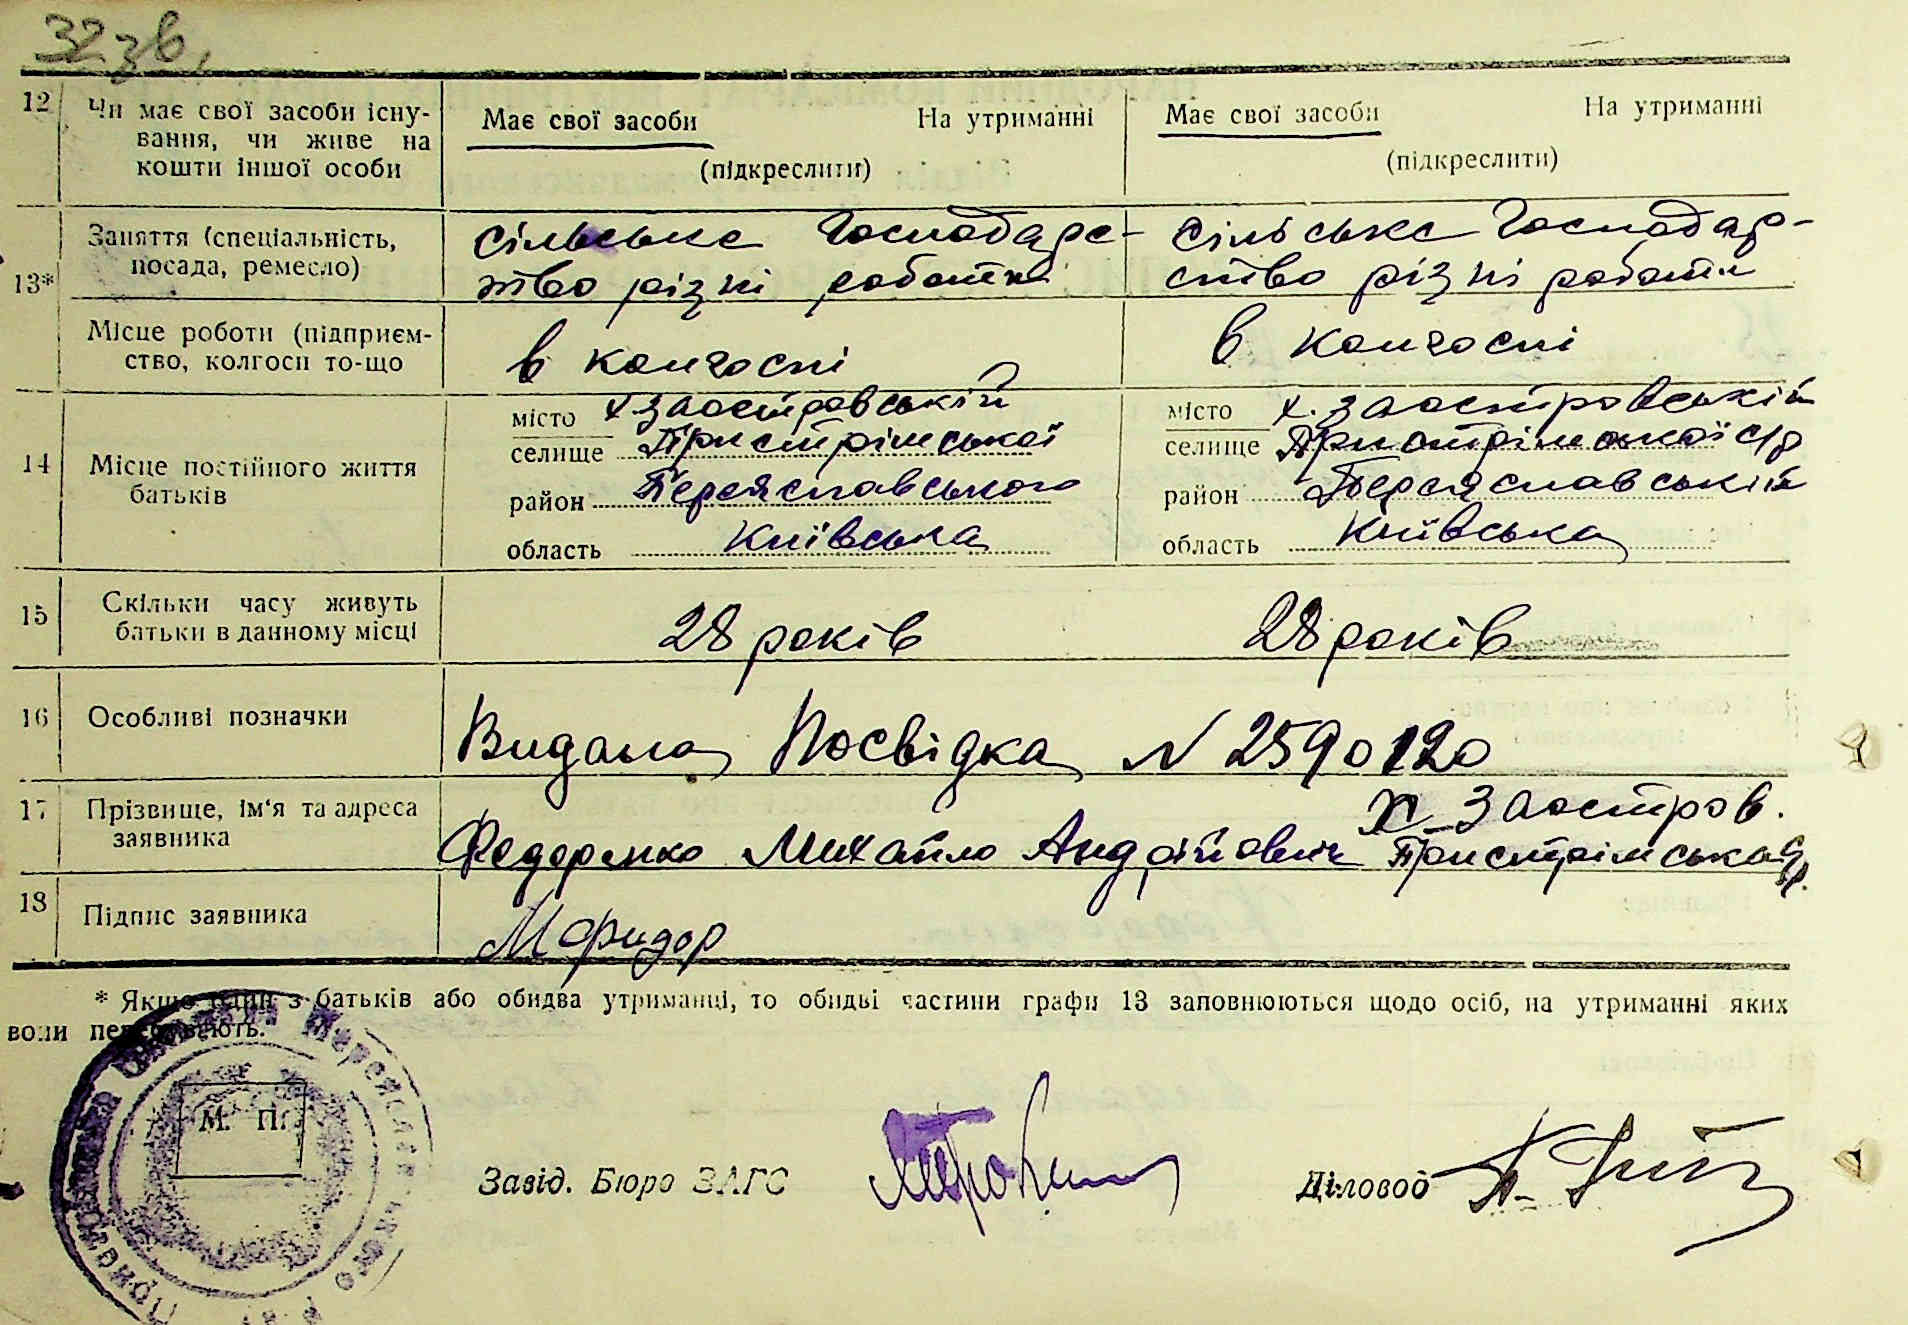 32 зв.
12 Чи має свої засоби існу- Має свої засоби На утриманні Має свої засоби На утриманні
вання, чи живе на
кошти іншої особи (підкреслити) (підкреслити)
13* Заняття (спеціальність, сільське господарс- сільське господар-
посада, ремесло) тво різні работи ство різні работи
Місце роботи (підприєм- в колгоспі в колгоспі
ство, колгосп то-що
14 Місце постійного життя батьків
місто х Заостровський місто х. Заостровський
селище Пристрімської селище Пристрімської с/р
район Переяславського район Переяславський
область Київська область Київська
15 Скільки часу живуть 28 років 28 років
батьки в данному місці
16 Особливі позначки Видана Посвідка N 2590120
17 Прізвище, ім'я та адреса х Заостров.
заявника Федоренко Михайло Андрійович Пристрімська с/р.
18 Підпис заявника М Фидор
* Якщо один з батьків або обидва утриманці, то обидві частини графи 13 заповнюються щодо осіб, на утриманні яких
вони перебувають.
М. П.
Завід. Бюро ЗАГС Діловод